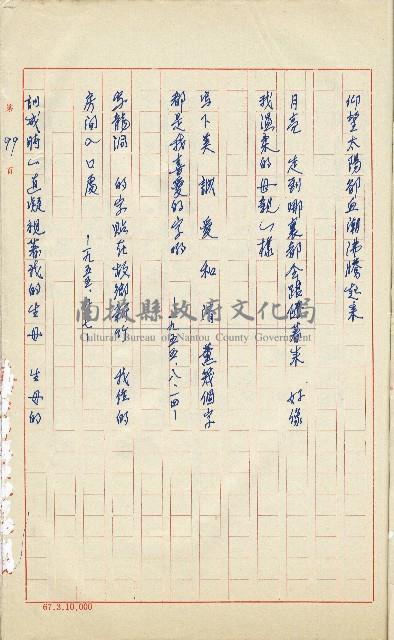 仰望太陽都血潮沸騰起來
月亮 走到哪裏都會跟隨著來 好像
我溫柔的母親一樣
寫下美 誠 愛 和 薰幾個字
都是我喜愛的字啊
一九五五.八.一四
龍洞 的字貼在故鄉新竹 我住的
房間入口處
一九五五.七
訓戒時一直凝視著我的生母 生母的
第 99 頁
南投縣政府文化局
Cultural Bureau of Nantou County Government
67.3.10,000